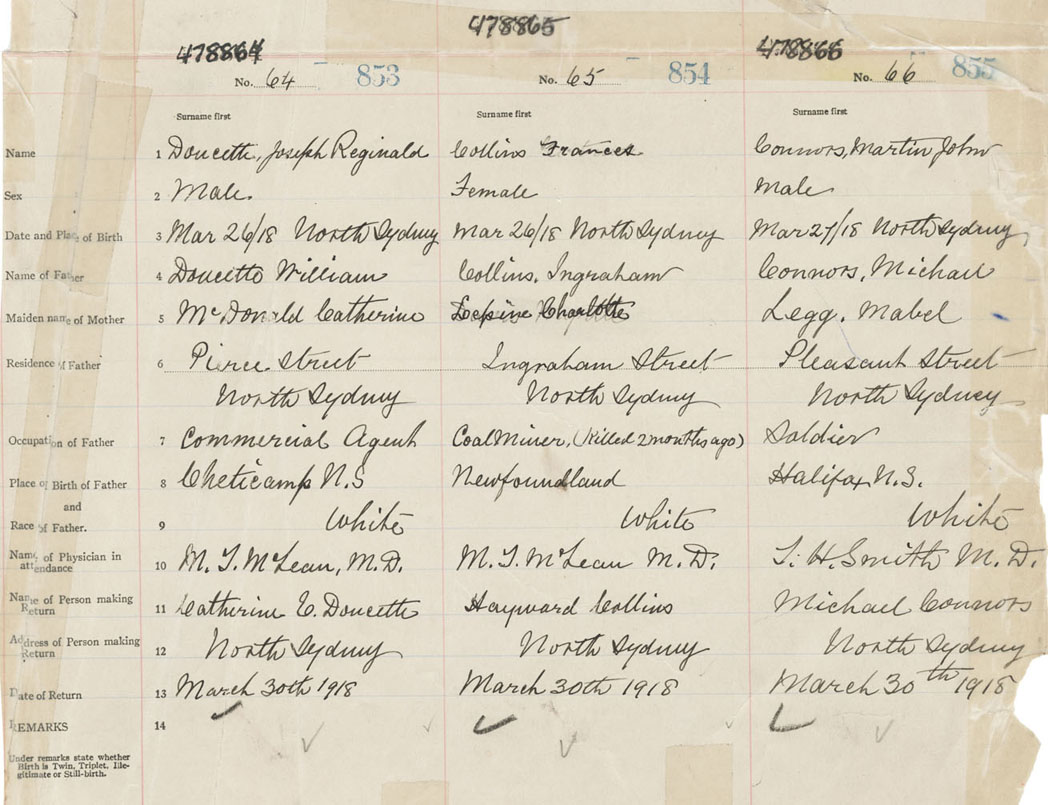 478865
478864 478866
No. 64 853 No. 65 854 No. 66 855
Surname first Surname first Surname first
Name 1 Doucette, Joseph Reginald Collins Frances Connors, Martin John
Sex 2 Male. Female Male
Date and Place of Birth 3 Mar 26/18 North Sydney Mar 26/18 North Sydney Mar 27/18 North Sydney
Name of Father 4 Doucette William Collins, Ingraham Connors, Michael
Maiden name of Mother 5 McDonald Catherine Lepine Charlotte Legg, Mabel
Residence of Father 6 Pierce Street Ingraham Street Pleasant Street
North Sydney North Sydney North Sydney
Occupation of Father 7 Commercial Agent Coal Miner, (Killed 2 months ago) Soldier
Place of Birth of Father 8 Cheticamp N.S Newfoundland Halifax, N.S.
and
Race of Father. 9 White White White
Name of Physician in
attendance 10 M. T. McLean, M.D. M. T. McLean M.D. T. H. Smith M.D.
Name of Person making
Return 11 Catherine E. Doucette Hayward Collins Michael Connors
Address of Person making
Return 12 North Sydney North Sydney North Sydney
Date of Return 13 March 30th 1918 March 30th 1918 March 30th 1918
REMARKS 14
Under remarks state whether
Birth is Twin, Triplet, Ille-
gitimate or Still-birth.